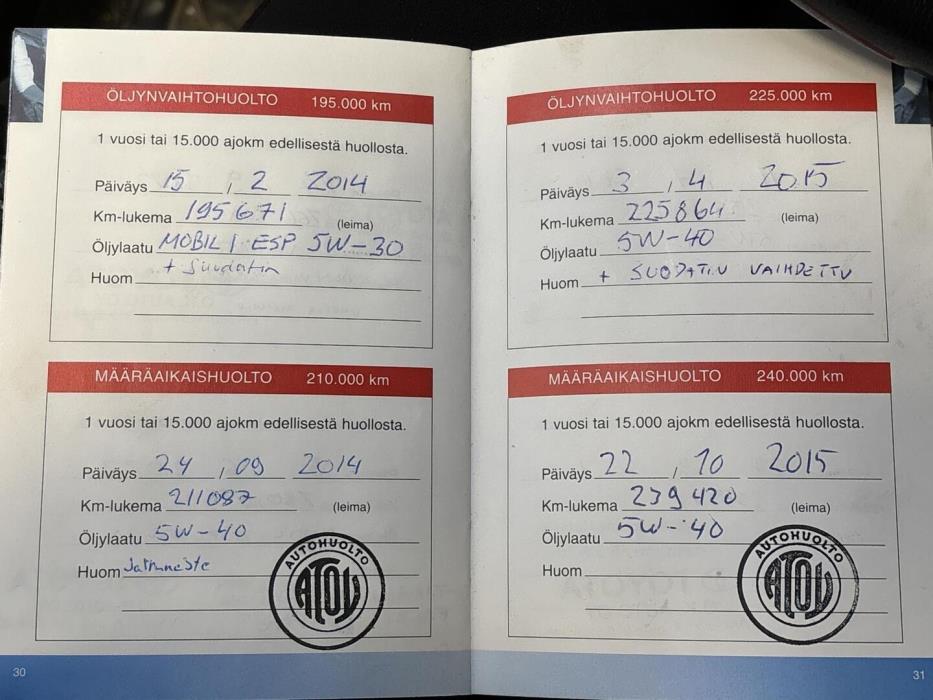 ÖLJYNVAIHTOHUOLTO 195.000 km
1 vuosi tai 15.000 ajokm edellisestä huollosta.
Päiväys 15 / 2 2014
Km-lukema 195671 (leima)
Öljylaatu MOBIL 1 ESP 5W-30
Huom + Suodatin
MÄÄRÄAIKAISHUOLTO 210.000 km
1 vuosi tai 15.000 ajokm edellisestä huollosta.
Päiväys 24 / 09 2014
Km-lukema 211087 (leima)
Öljylaatu 5W-40
Huom Jarruneste
AUTOHUOLTO
ATOY
30
ÖLJYNVAIHTOHUOLTO 225.000 km
1 vuosi tai 15.000 ajokm edellisestä huollosta.
Päiväys 3 / 4 2015
Km-lukema 225864 (leima)
Öljylaatu 5W-40
Huom + SUODATIN VAIHDETTU
MÄÄRÄAIKAISHUOLTO 240.000 km
1 vuosi tai 15.000 ajokm edellisestä huollosta.
Päiväys 22 / 10 2015
Km-lukema 239420 (leima)
Öljylaatu 5W-40
Huom
AUTOHUOLTO
ATOY
31